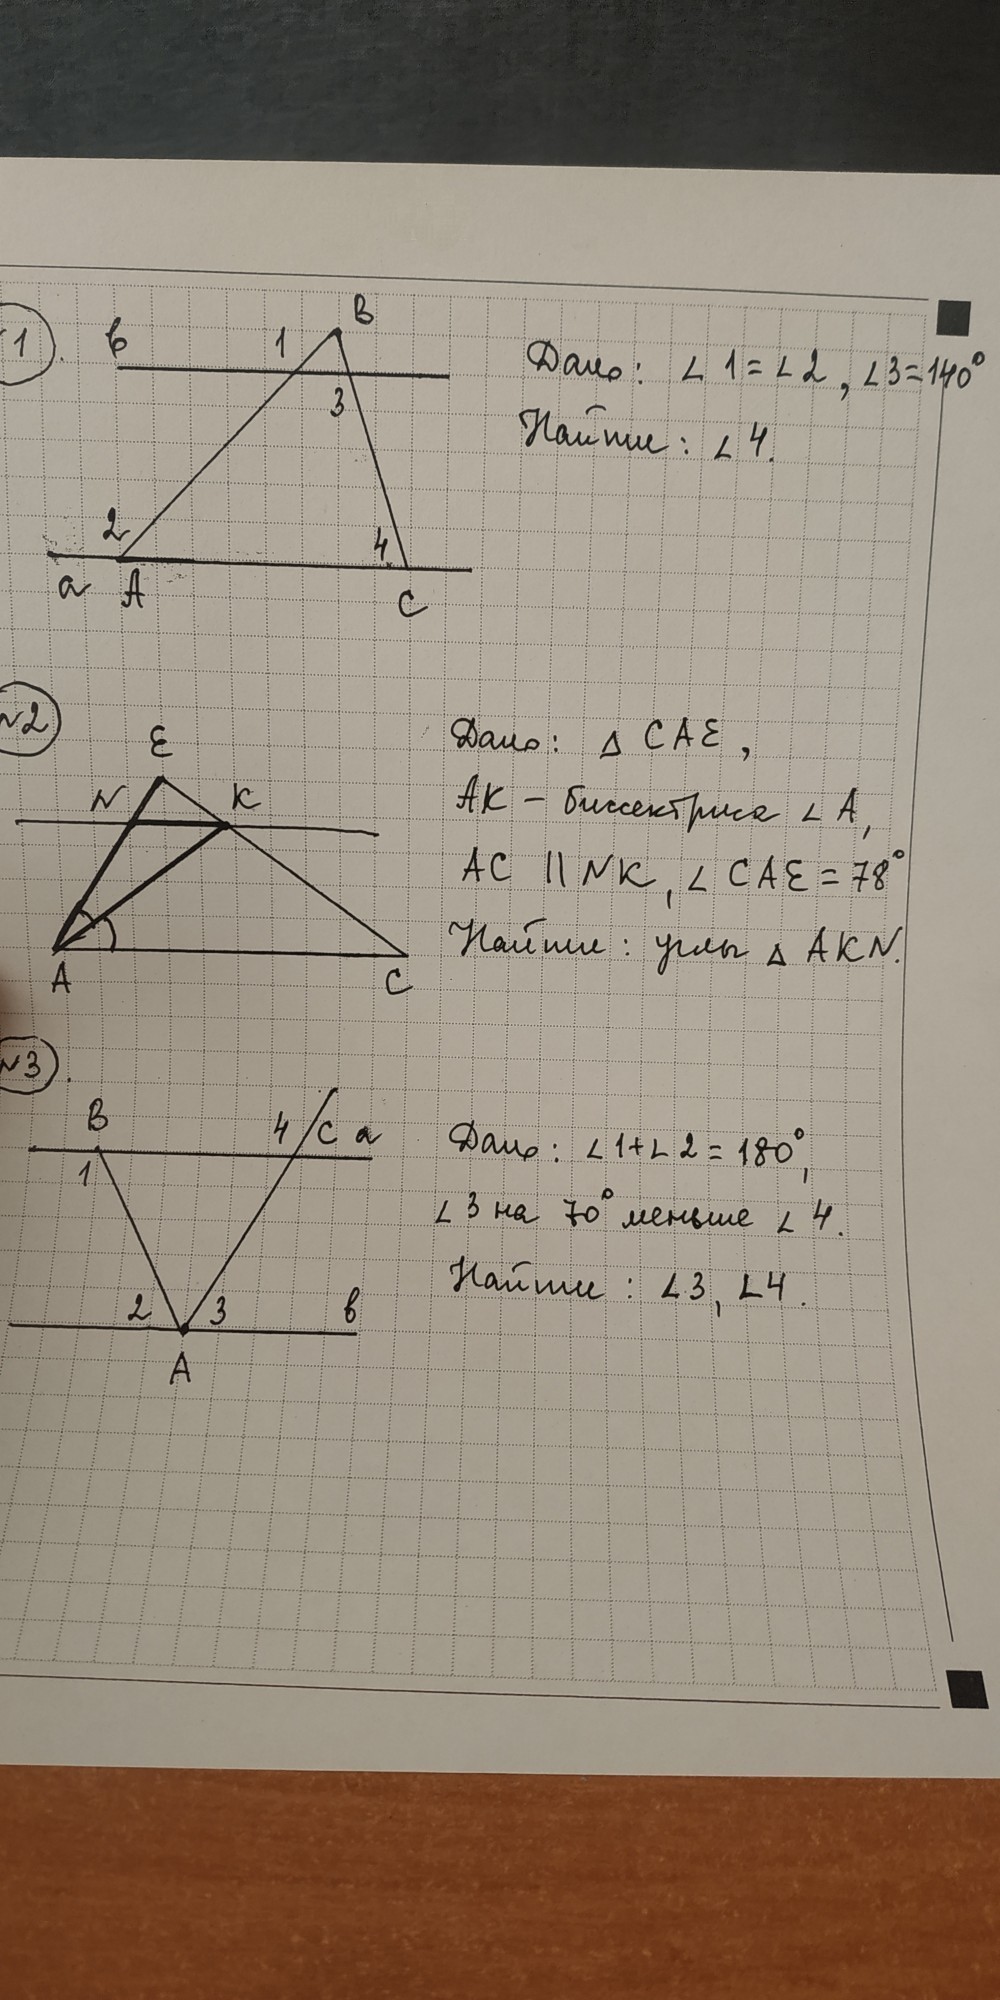 1. в 1 B
3
2 4
a A C
Дано: ∠1=∠2, ∠3=140°
Найти: ∠4.
N2
E
N K
A C
Дано: △ CAE,
AK – биссектриса ∠A,
AC || NK, ∠CAE=78°
Найти: углы △ AKN.
N3.
B 4 C a
1
2 3 в
A
Дано: ∠1+∠2=180°,
∠3 на 70° меньше ∠4.
Найти: ∠3, ∠4.